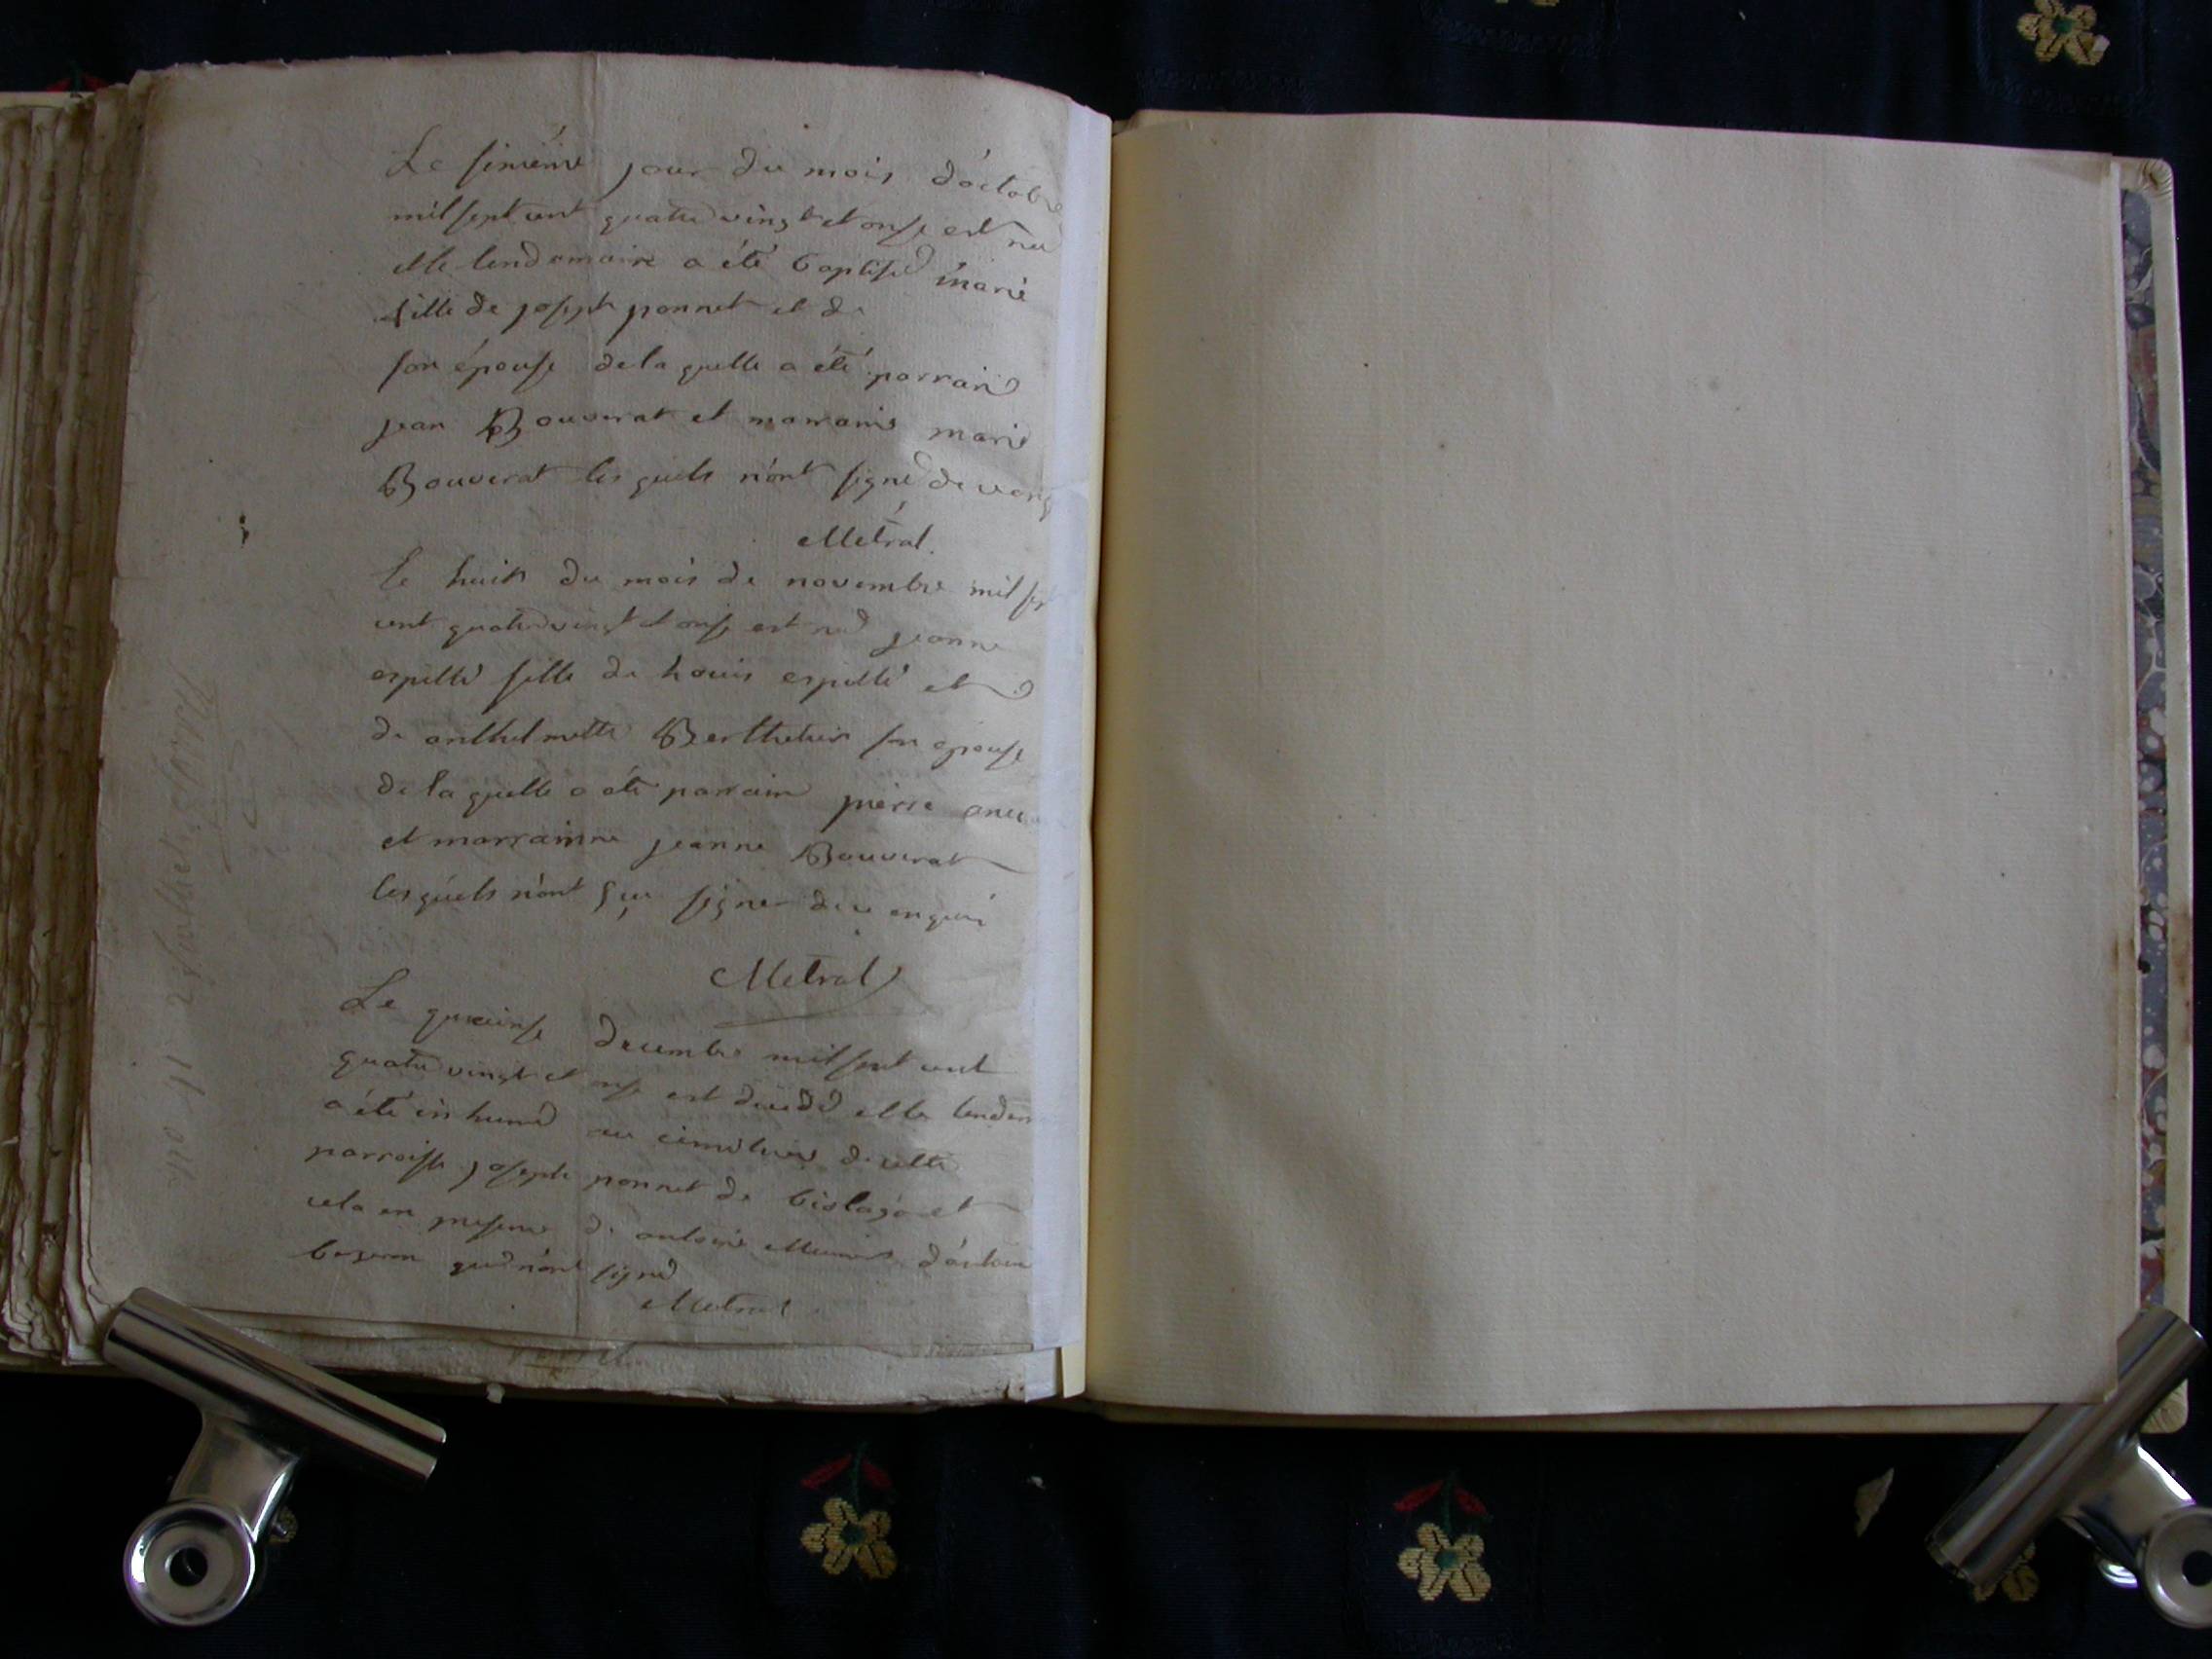 Le sixiéme jour du mois d'octobre
mil sept cent quatre vingt et onse est née
et le lendemaire a été baptisée marie
fille de joseph ponnet et de
son épouse de la quelle a été parrain
jean Bouverat et marraine marie
Bouverat les quels n'ont signé de
Metral.
le huit du mois de novembre mil sep
cent quatre vingt et onse est née jeanne
espillé fille de Louis espillé et
de anthelmette Berthelier son epouse
de la quelle a été parrain pierre
et marrainne jeanne Bouverat
les quels n'ont sçu signer de ce enquis
Metral
Le quinse decembre mil sept cent
quatre vingt et onse est decedé et le lendem
a été inhumé au cimetiere de cette
parroisse joseph ponnet de et
cela en presence de antoine
que n'ont signé
Metral